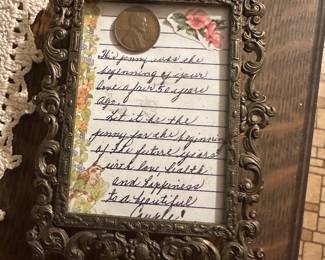 This penny was the
beginning of your
love after 50 years
ago.
Let it be the
penny for the beginning
of the future years
with love health
and happiness
to a beautiful
couple!